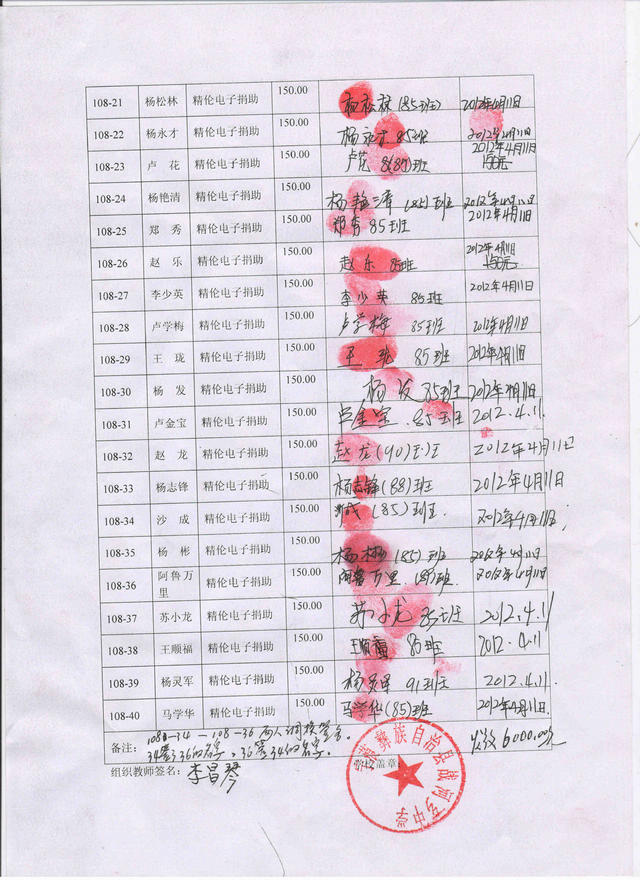 108-21 杨松林 精伦电子捐助 150.00 杨松林(85班) 2012年4月11日
108-22 杨永才 精伦电子捐助 150.00 杨永才 85班 2012年4月11日
108-23 卢 花 精伦电子捐助 150.00 卢花 8(87)班 2012年4月11日
108-24 杨艳清 精伦电子捐助 150.00 杨艳清 (85)班 2012年4月11日
108-25 郑 秀 精伦电子捐助 150.00 郑秀 85班 2012年4月11日
108-26 赵 乐 精伦电子捐助 150.00 赵乐 85班 2012年4月11日
108-27 李少英 精伦电子捐助 150.00 李少英 85班 2012年4月11日
108-28 卢学梅 精伦电子捐助 150.00 卢学梅 85班 2012年4月11日
108-29 王 珑 精伦电子捐助 150.00 王珑 85班 2012年4月11日
108-30 杨 发 精伦电子捐助 150.00 杨发 85班 2012年4月11日
108-31 卢金宝 精伦电子捐助 150.00 卢金宝 85班 2012.4.11.
108-32 赵 龙 精伦电子捐助 150.00 赵龙(90)班 2012年4月11日
108-33 杨志锋 精伦电子捐助 150.00 杨志锋(88)班 2012年4月11日
108-34 沙 成 精伦电子捐助 150.00 沙成(85)班. 2012年4月11日.
108-35 杨 彬 精伦电子捐助 150.00 杨彬 (85)班 2012年4月11日
108-36 阿鲁万里 精伦电子捐助 150.00 阿鲁万里 班. 2012年4月11日.
108-37 苏小龙 精伦电子捐助 150.00 苏小龙 85班 2012.4.11
108-38 王顺福 精伦电子捐助 150.00 王顺福 85班 2012.4.11
108-39 杨灵军 精伦电子捐助 150.00 杨灵军 91班 2012.4.11.
108-40 马学华 精伦电子捐助 150.00 马学华(85)班 2012年4月11日
备注: 108-34 — 108-36 两人调换签名. 34签36的名字, 36签34的名字. 发放6000.00元
组织教师签名: 李昌琴 学校盖章:
彝族自治县战河乡中学